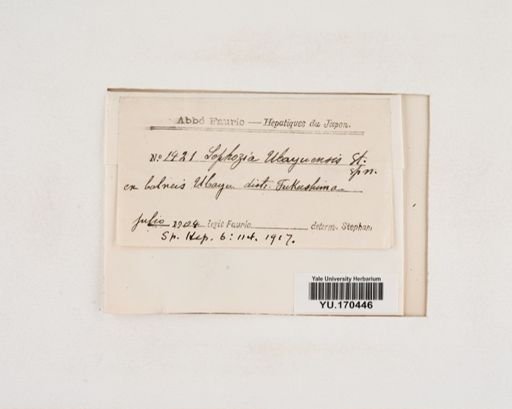 Abbé Faurie — Hepatiques du Japon.
No 1421 Lophozia Ubayuensis St. sp n.
ex balneis Ubayu dist. Fukushima
julio 1904 legit Faurie determ. Stephani
Sp. Hep. 6: 114. 1917.
Yale University Herbarium
YU.170446